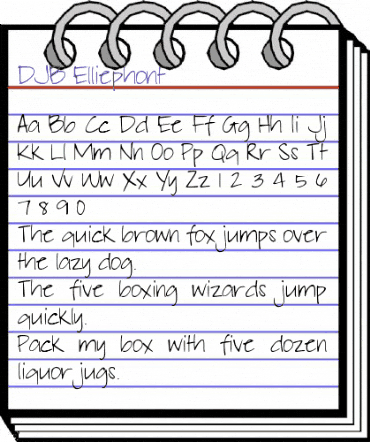 DJB Elliephont
Aa Bb Cc Dd Ee Ff Gg Hh Ii Jj
Kk Ll Mm Nn Oo Pp Qq Rr Ss Tt
Uu Vv Ww Xx Yy Zz 1 2 3 4 5 6
7 8 9 0
The quick brown fox jumps over
the lazy dog.
The five boxing wizards jump
quickly.
Pack my box with five dozen
liquor jugs.